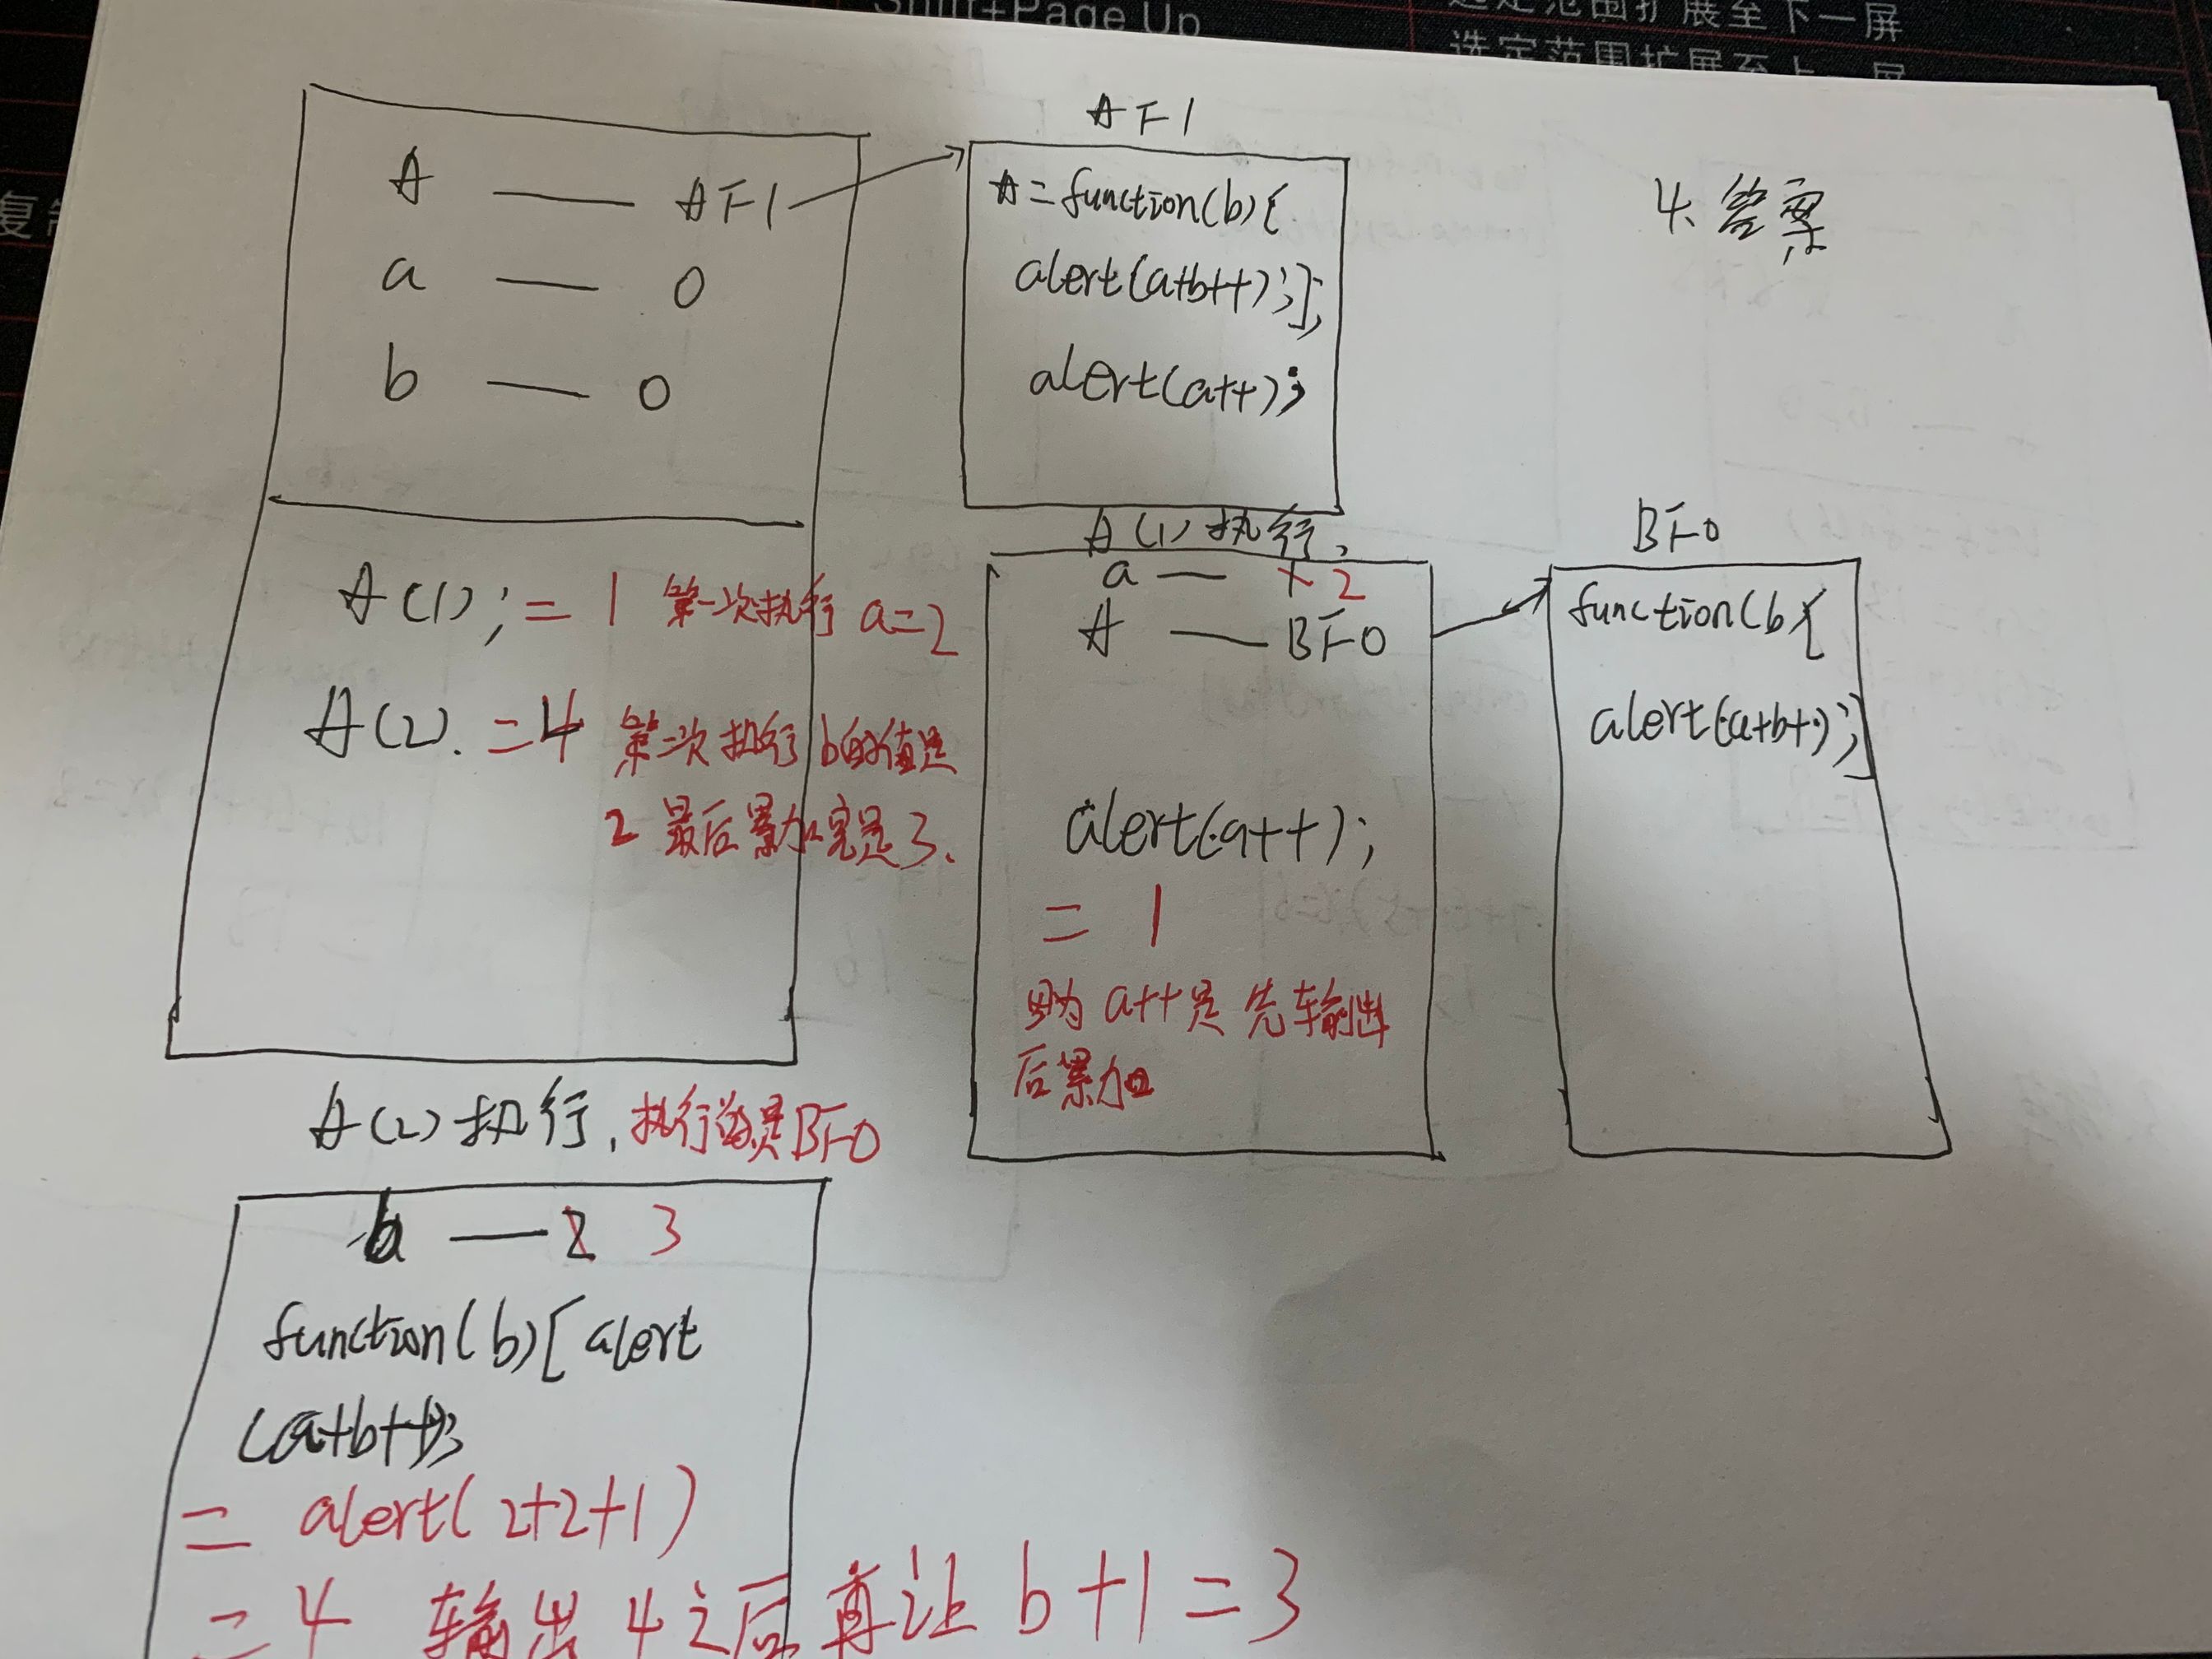 Shift+Page Up
选定范围扩展至下一屏
选定范围扩展至上一屏
4、答案
A — AF1
a — 0
b — 0
A(1); = 1 第一次执行 a=2
A(2). =4 第二次执行 b的值是
2 最后累加完是3、
AF1
A=function(b){
alert(a+b++);};
alert(a++);
A(1)执行,
a — 1 2
A — BF0
alert(a++);
= 1
因为 a++是 先输出
后累加
BF0
function(b{
alert(a+b+);}
A(2)执行,执行的是BF0
b — 2 3
function(b)[alert
(a+b++);
= alert(2+2+1)
=4 输出4之后 再让 b+1=3